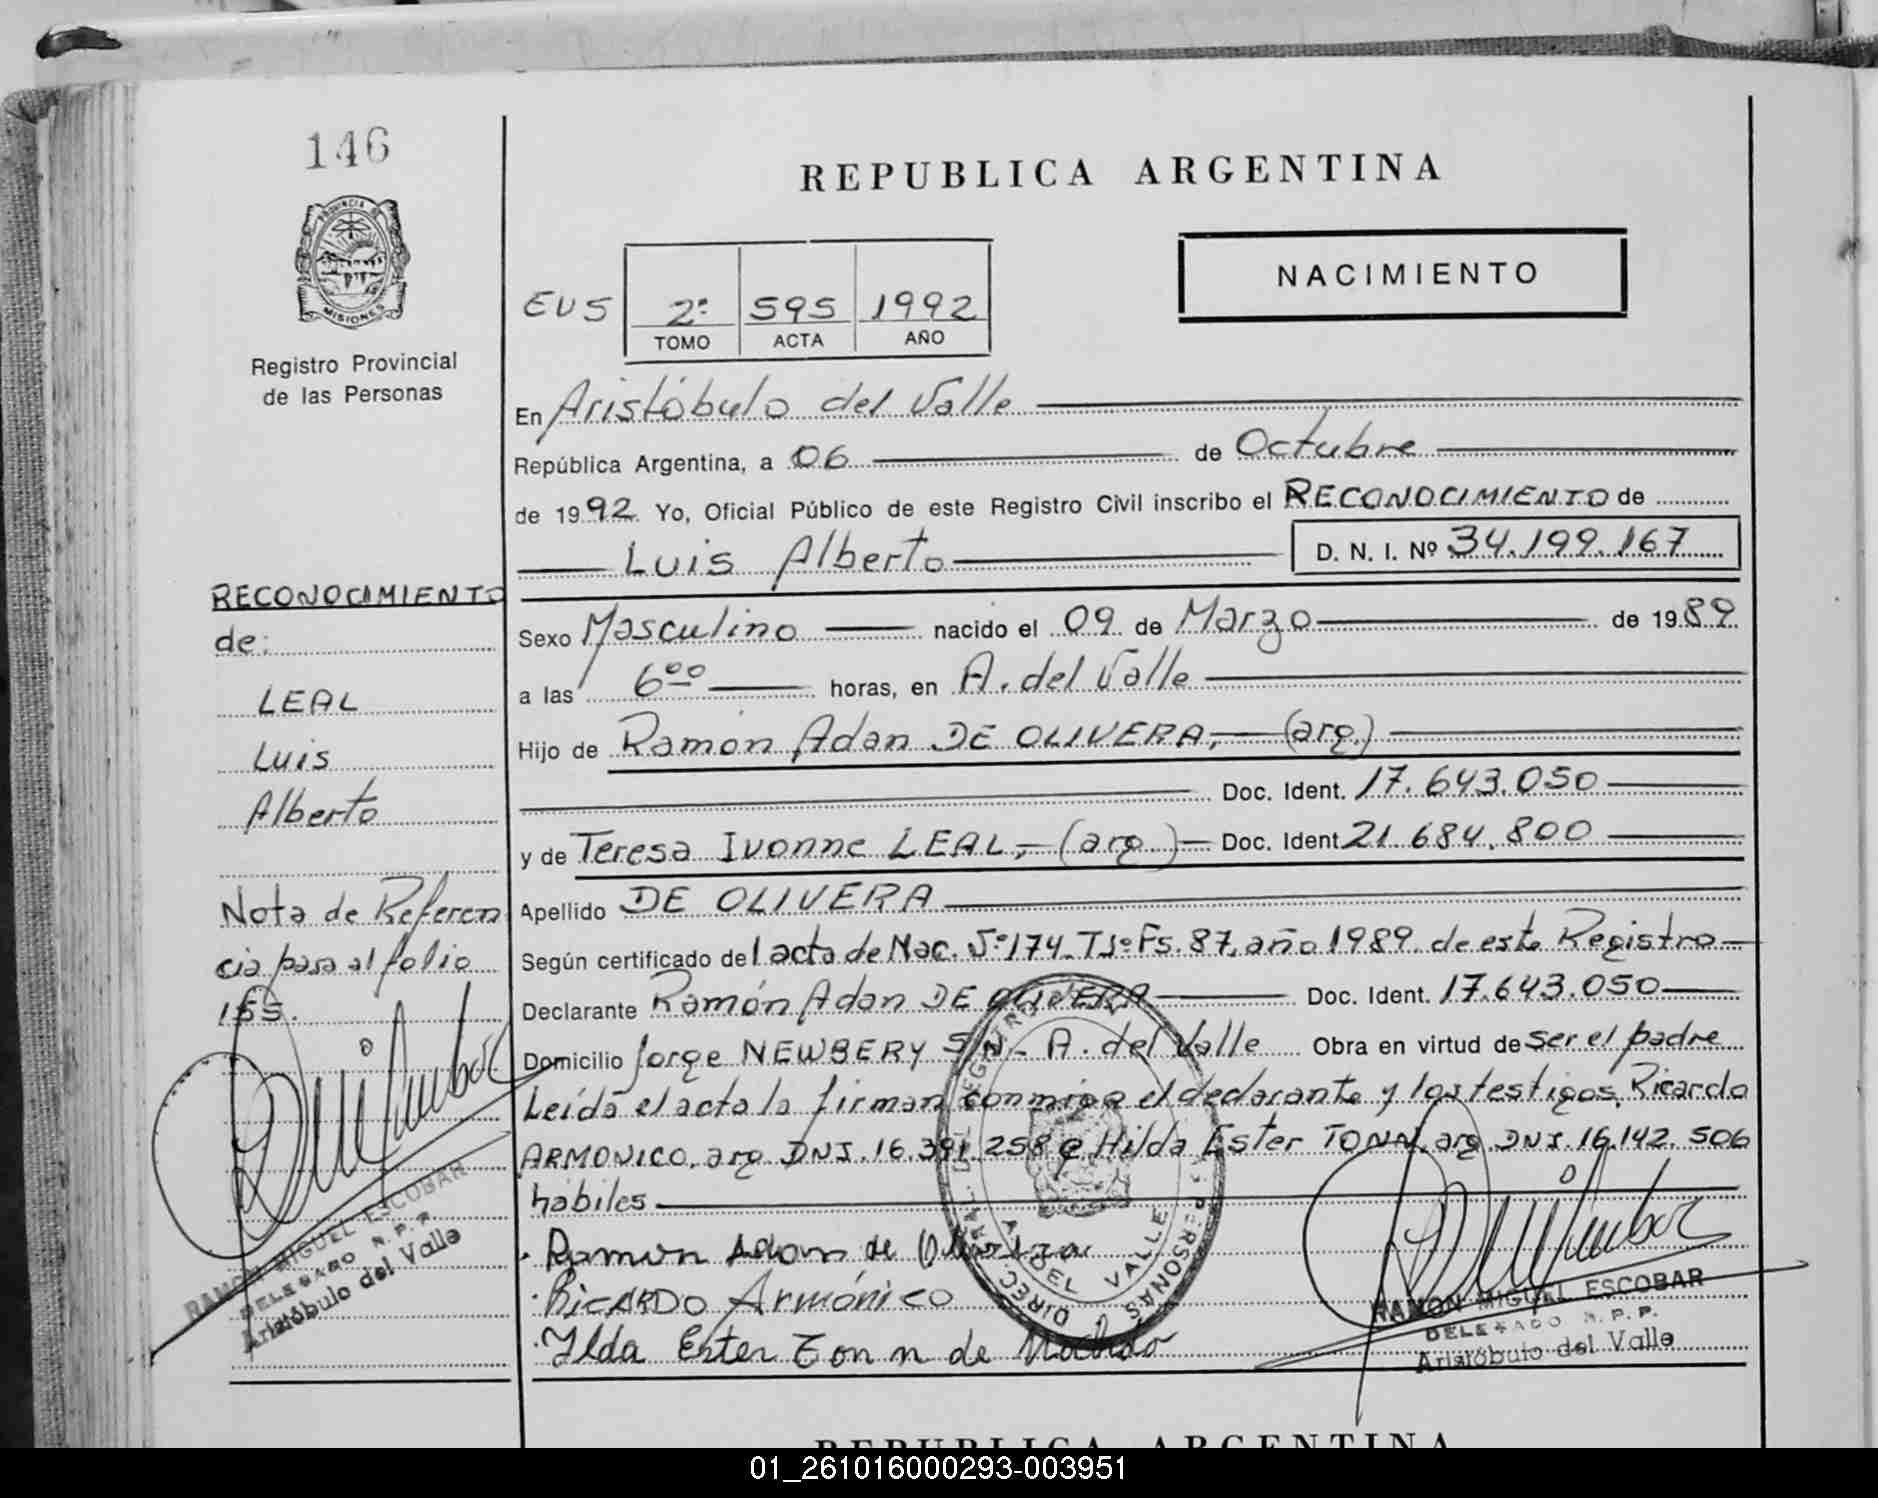 146
PROVINCIA DE
MISIONES
Registro Provincial
de las Personas
RECONOCIMIENTO
de:
LEAL
Luis
Alberto
Nota de Referen
cia pasa al folio
155.
RAMON MIGUEL ESCOBAR
DELEGADO R.P.P.
Aristóbulo del Valle
REPUBLICA ARGENTINA
NACIMIENTO
EUS 2º 595 1992
TOMO ACTA AÑO
En Aristóbulo del Valle
República Argentina, a 06 de Octubre
de 1992. Yo, Oficial Público de este Registro Civil inscribo el RECONOCIMIENTO de
Luis Alberto D. N. I. Nº 34.199.167
Sexo Masculino nacido el 09 de Marzo de 1989
a las 6ºº horas, en A. del Valle
Hijo de Ramón Adan DE OLIVERA, (arg.)
Doc. Ident. 17.643.050
y de Teresa Ivonne LEAL, (arg) Doc. Ident 21.684.800
Apellido DE OLIVERA
Según certificado del acta de Nac. Nº 174 Tº Fs. 87, año 1989 de este Registro
Declarante Ramón Adan DE OLIVERA Doc. Ident. 17.643.050
Domicilio Jorge NEWBERY S/N - A. del Valle Obra en virtud de ser el padre
Leída el acta la firman conmigo el declarante y los testigos, Ricardo
ARMONICO, arg DNI. 16.391.258 e Hilda Ester TONN, arg DNI. 16.142.506
hábiles
Ramon Adan de Olivera
RICARDO Armónico
Ilda Ester Tonn de
A. DEL VALLE
RAMON MIGUEL ESCOBAR
DELEGADO R.P.P.
Aristóbulo del Valle
REPUBLICA ARGENTINA
01_261016000293-003951